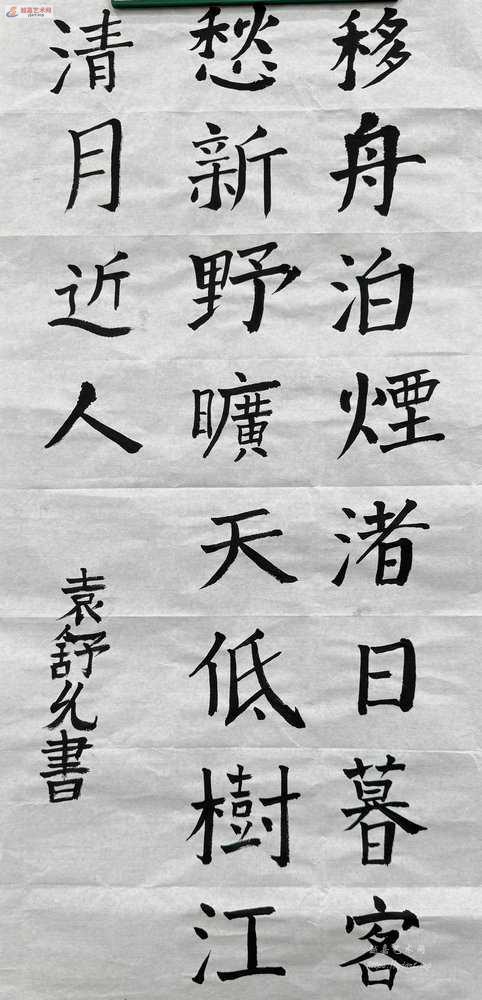 移舟泊煙渚日暮客
愁新野曠天低樹江
清月近人
袁舒允書